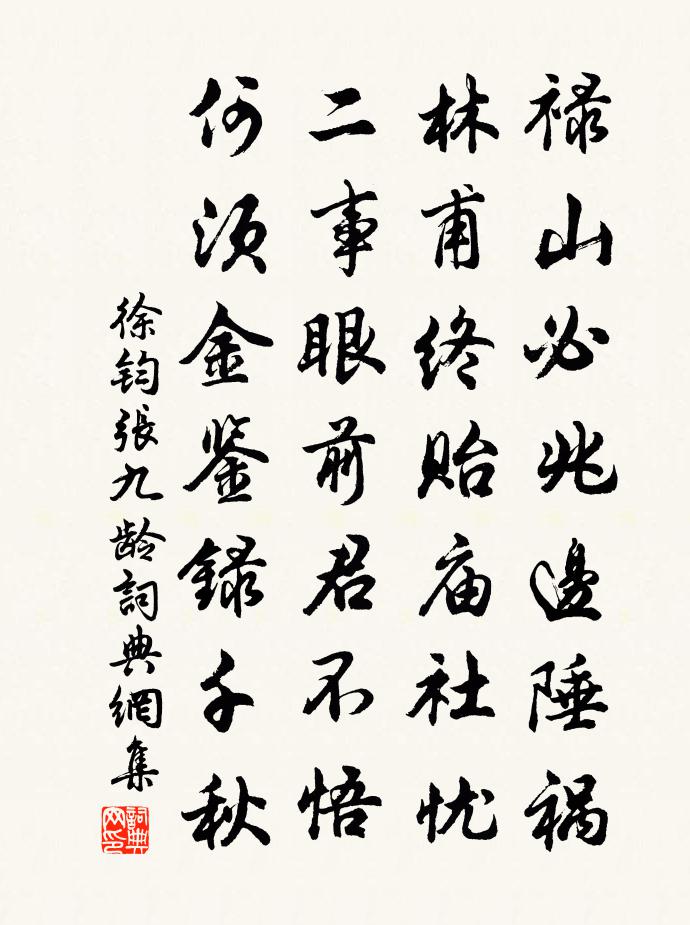 禄山必兆邊陲禍
林甫终贻庙社忧
二事眼前君不悟
何须金鉴録千秋
徐钧張九龄詞典網集
詞典网印